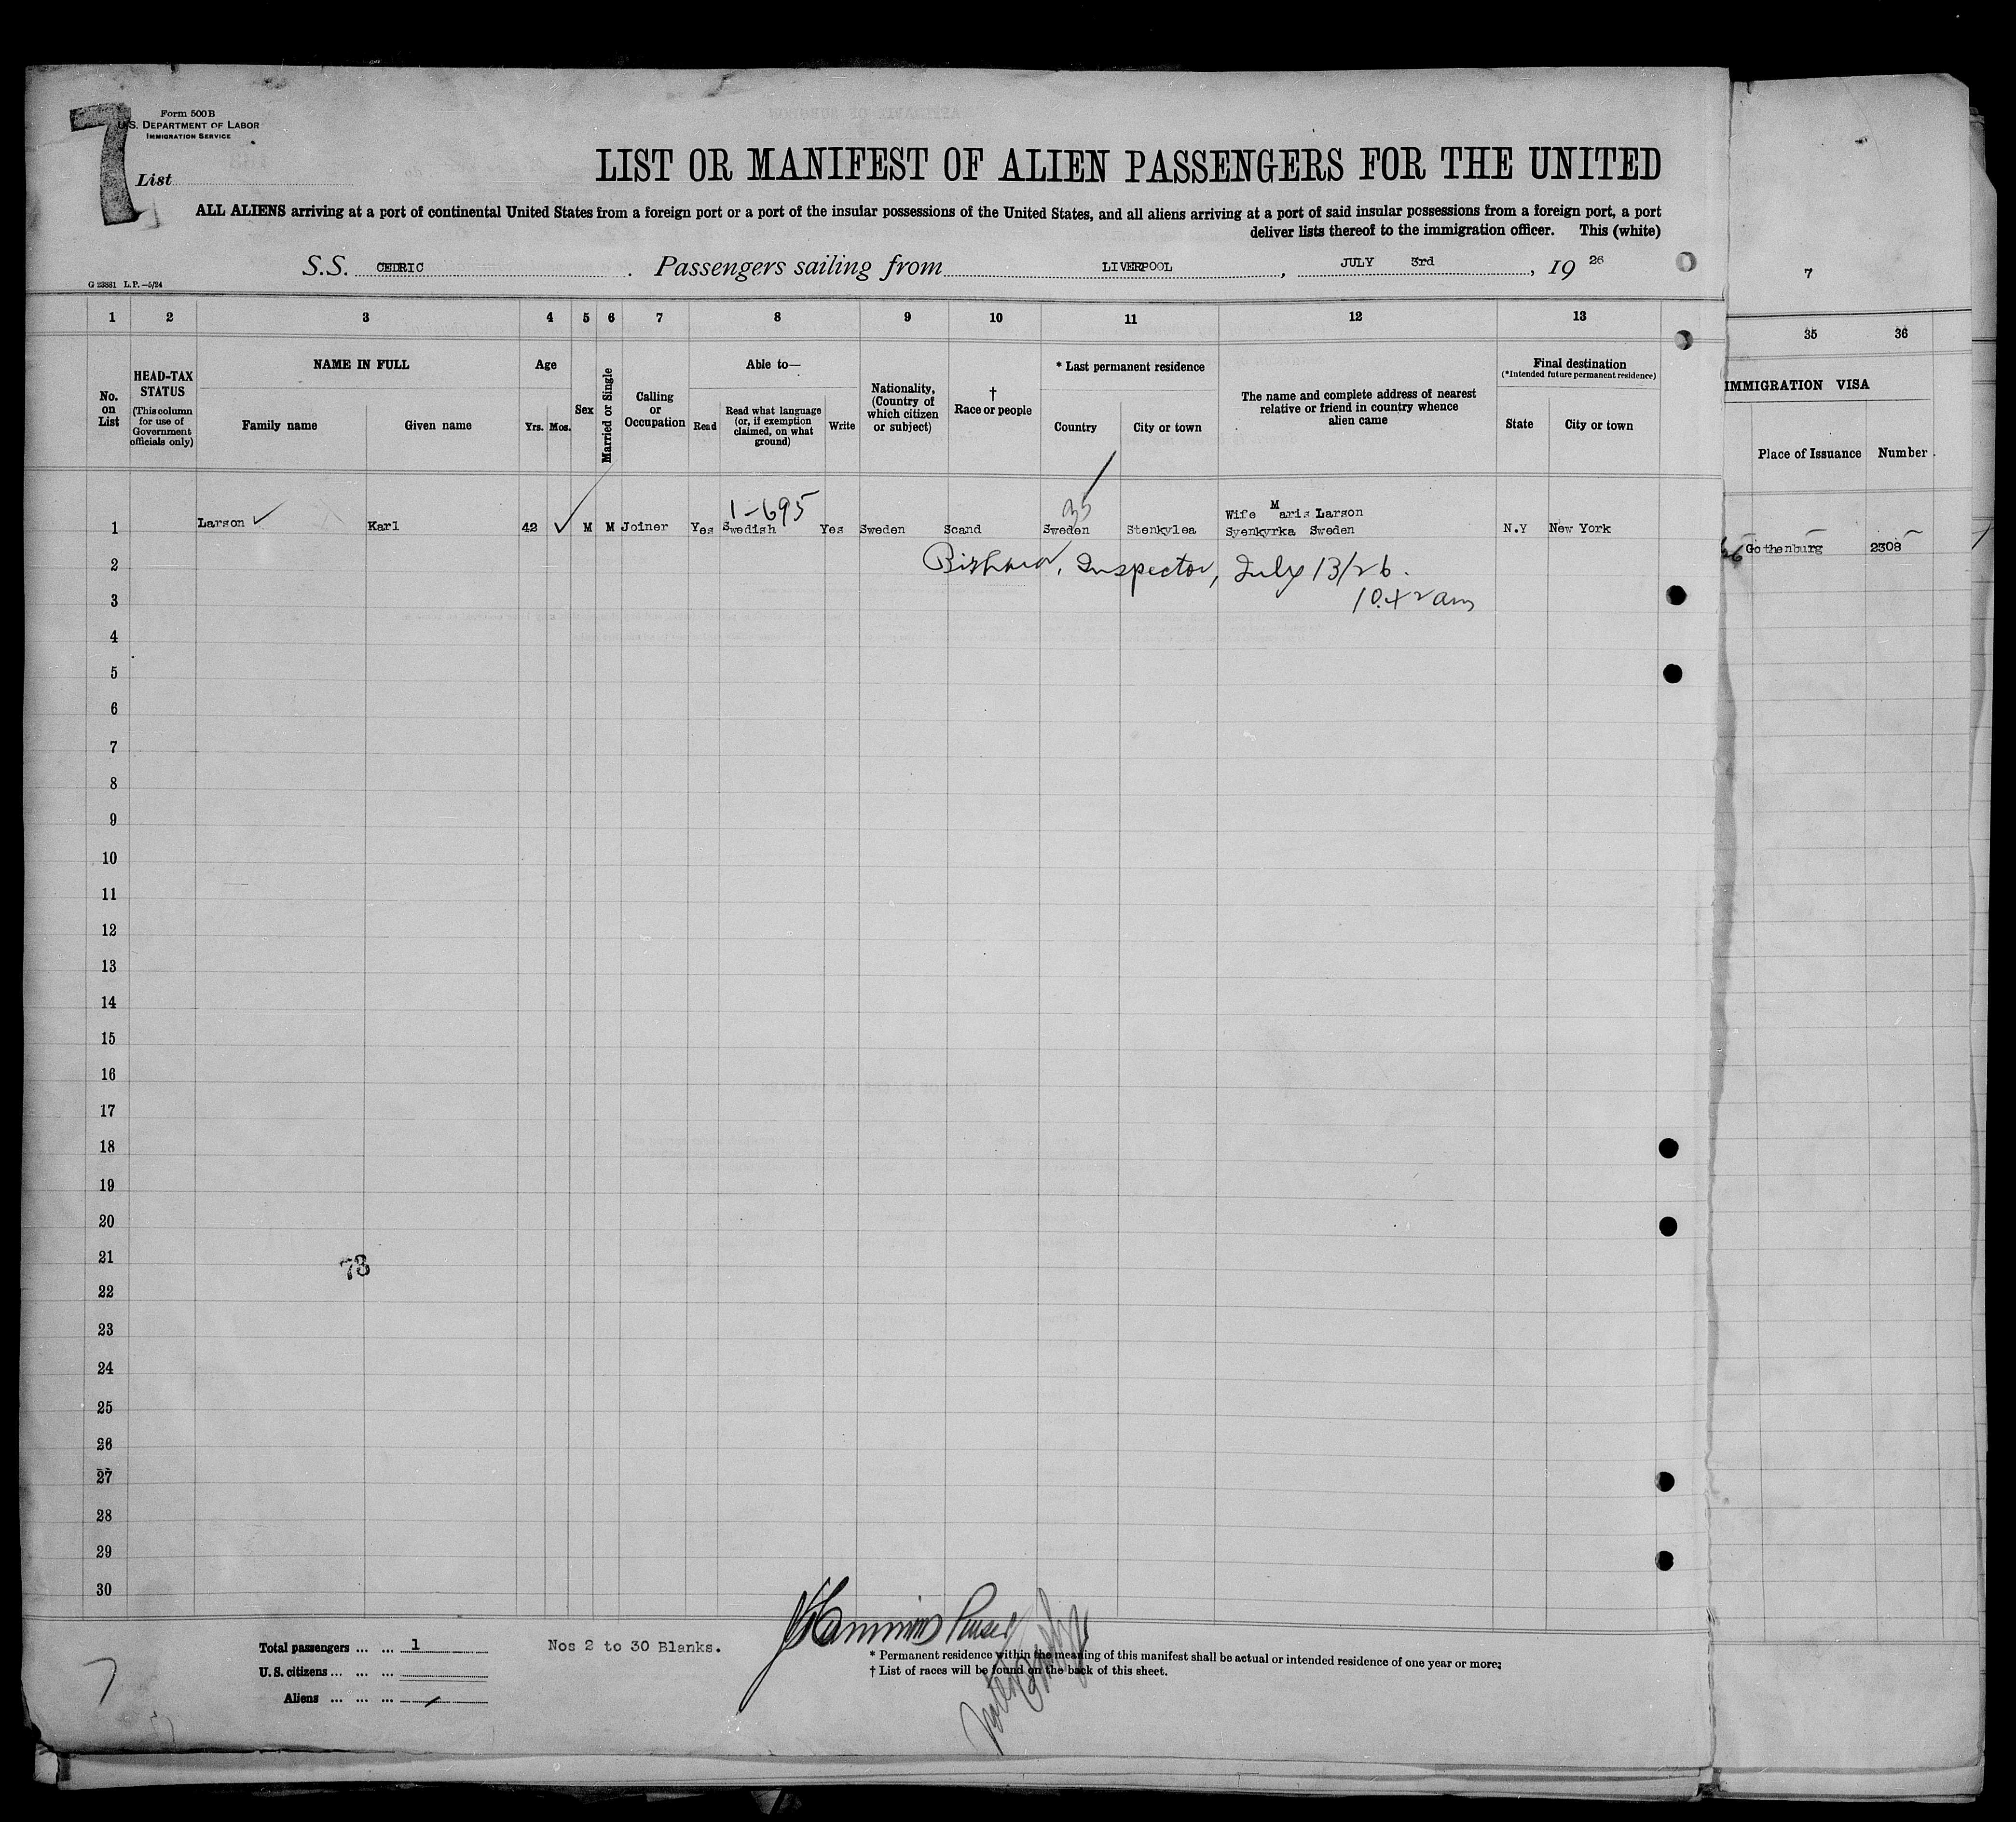 7
Form 500B
U.S. DEPARTMENT OF LABOR
IMMIGRATION SERVICE
List
LIST OR MANIFEST OF ALIEN PASSENGERS FOR THE UNITED
ALL ALIENS arriving at a port of continental United States from a foreign port or a port of the insular possessions of the United States, and all aliens arriving at a port of said insular possessions from a foreign port, a port
deliver lists thereof to the immigration officer. This (white)
S.S. CEDRIC . Passengers sailing from LIVERPOOL , JULY 3rd , 19 26
G 23881 L.P.—5/24
7
1 2 3 4 5 6 7 8 9 10 11 12 13
35 36
No. on List
HEAD-TAX STATUS
(This column for use of Government officials only)
NAME IN FULL
Family name Given name
Age
Yrs. Mos.
Sex
Married or Single
Calling or Occupation
Able to—
Read
Read what language (or, if exemption claimed, on what ground)
Write
Nationality, (Country of which citizen or subject)
† Race or people
* Last permanent residence
Country City or town
The name and complete address of nearest relative or friend in country whence alien came
Final destination
(*Intended future permanent residence)
State City or town
IMMIGRATION VISA
Place of Issuance Number
1-695
35
Wife Maris Larson
1 Larson ✓ Karl 42 ✓ M M Joiner Yes Swedish Yes Sweden Scand Sweden Stenkylea Syenkyrka Sweden N.Y New York
Gothenburg 2308
2 Inspector, July 13/26.
3 10.42 am
4
5
6
7
8
9
10
11
12
13
14
15
16
17
18
19
20
21
73
22
23
24
25
26
27
28
29
30
Total passengers ... ... 1
Nos 2 to 30 Blanks.
Purser
U.S. citizens ... ... ...
Aliens ... ... ...
* Permanent residence within the meaning of this manifest shall be actual or intended residence of one year or more.
† List of races will be found on the back of this sheet.
7